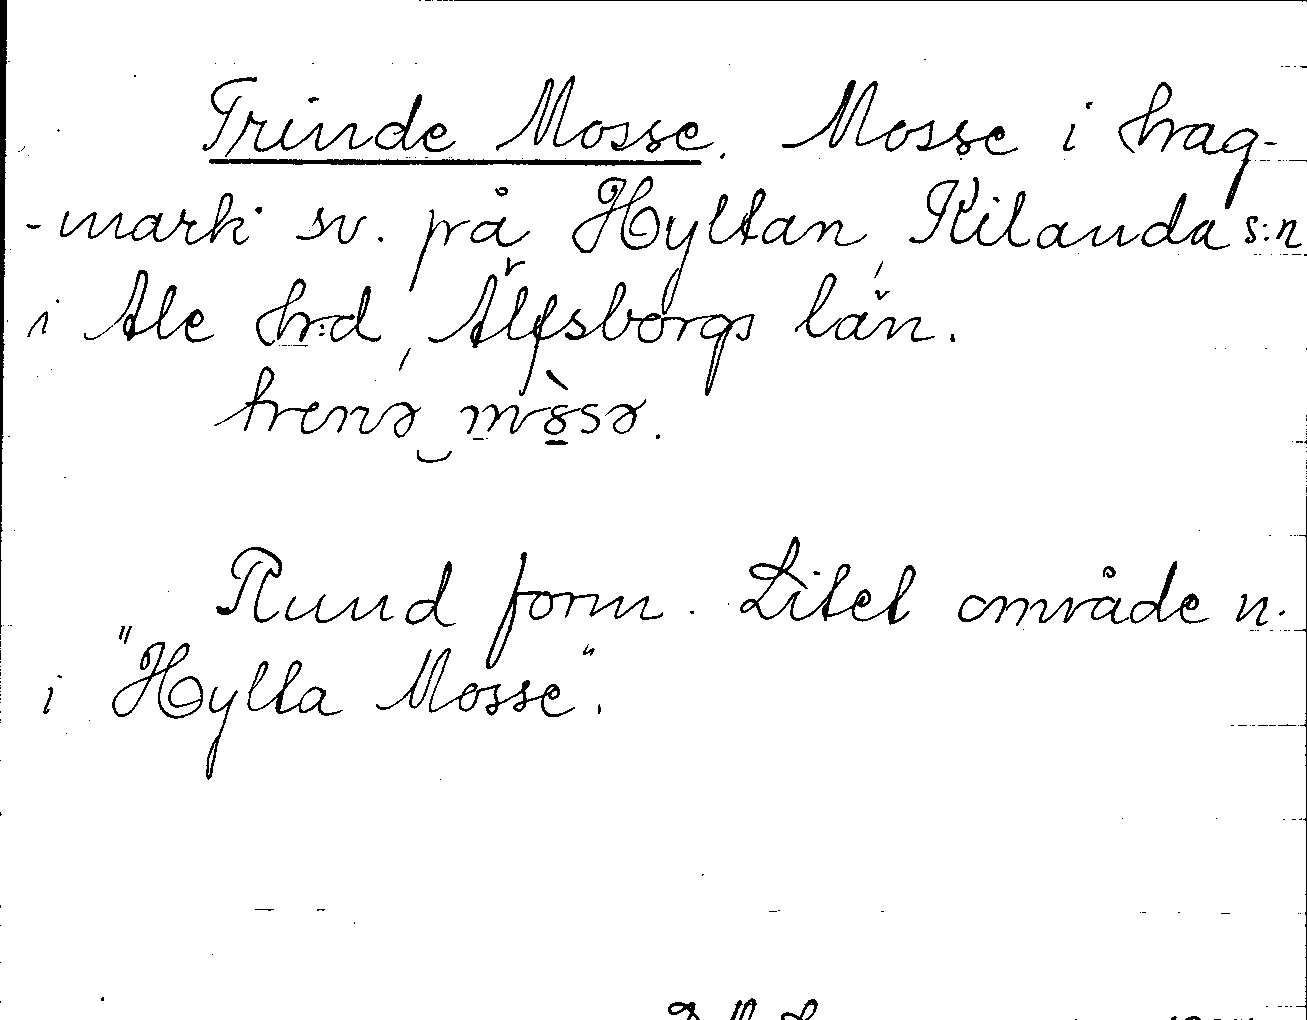 Trinde Mosse. Mosse i hag-
-mark sv. på Hyltan, Kilanda s:n
i Ale hrd, Älfsborgs län.
trenə mòsə.
Rund form. Litet område n.
i "Hylta Mosse".